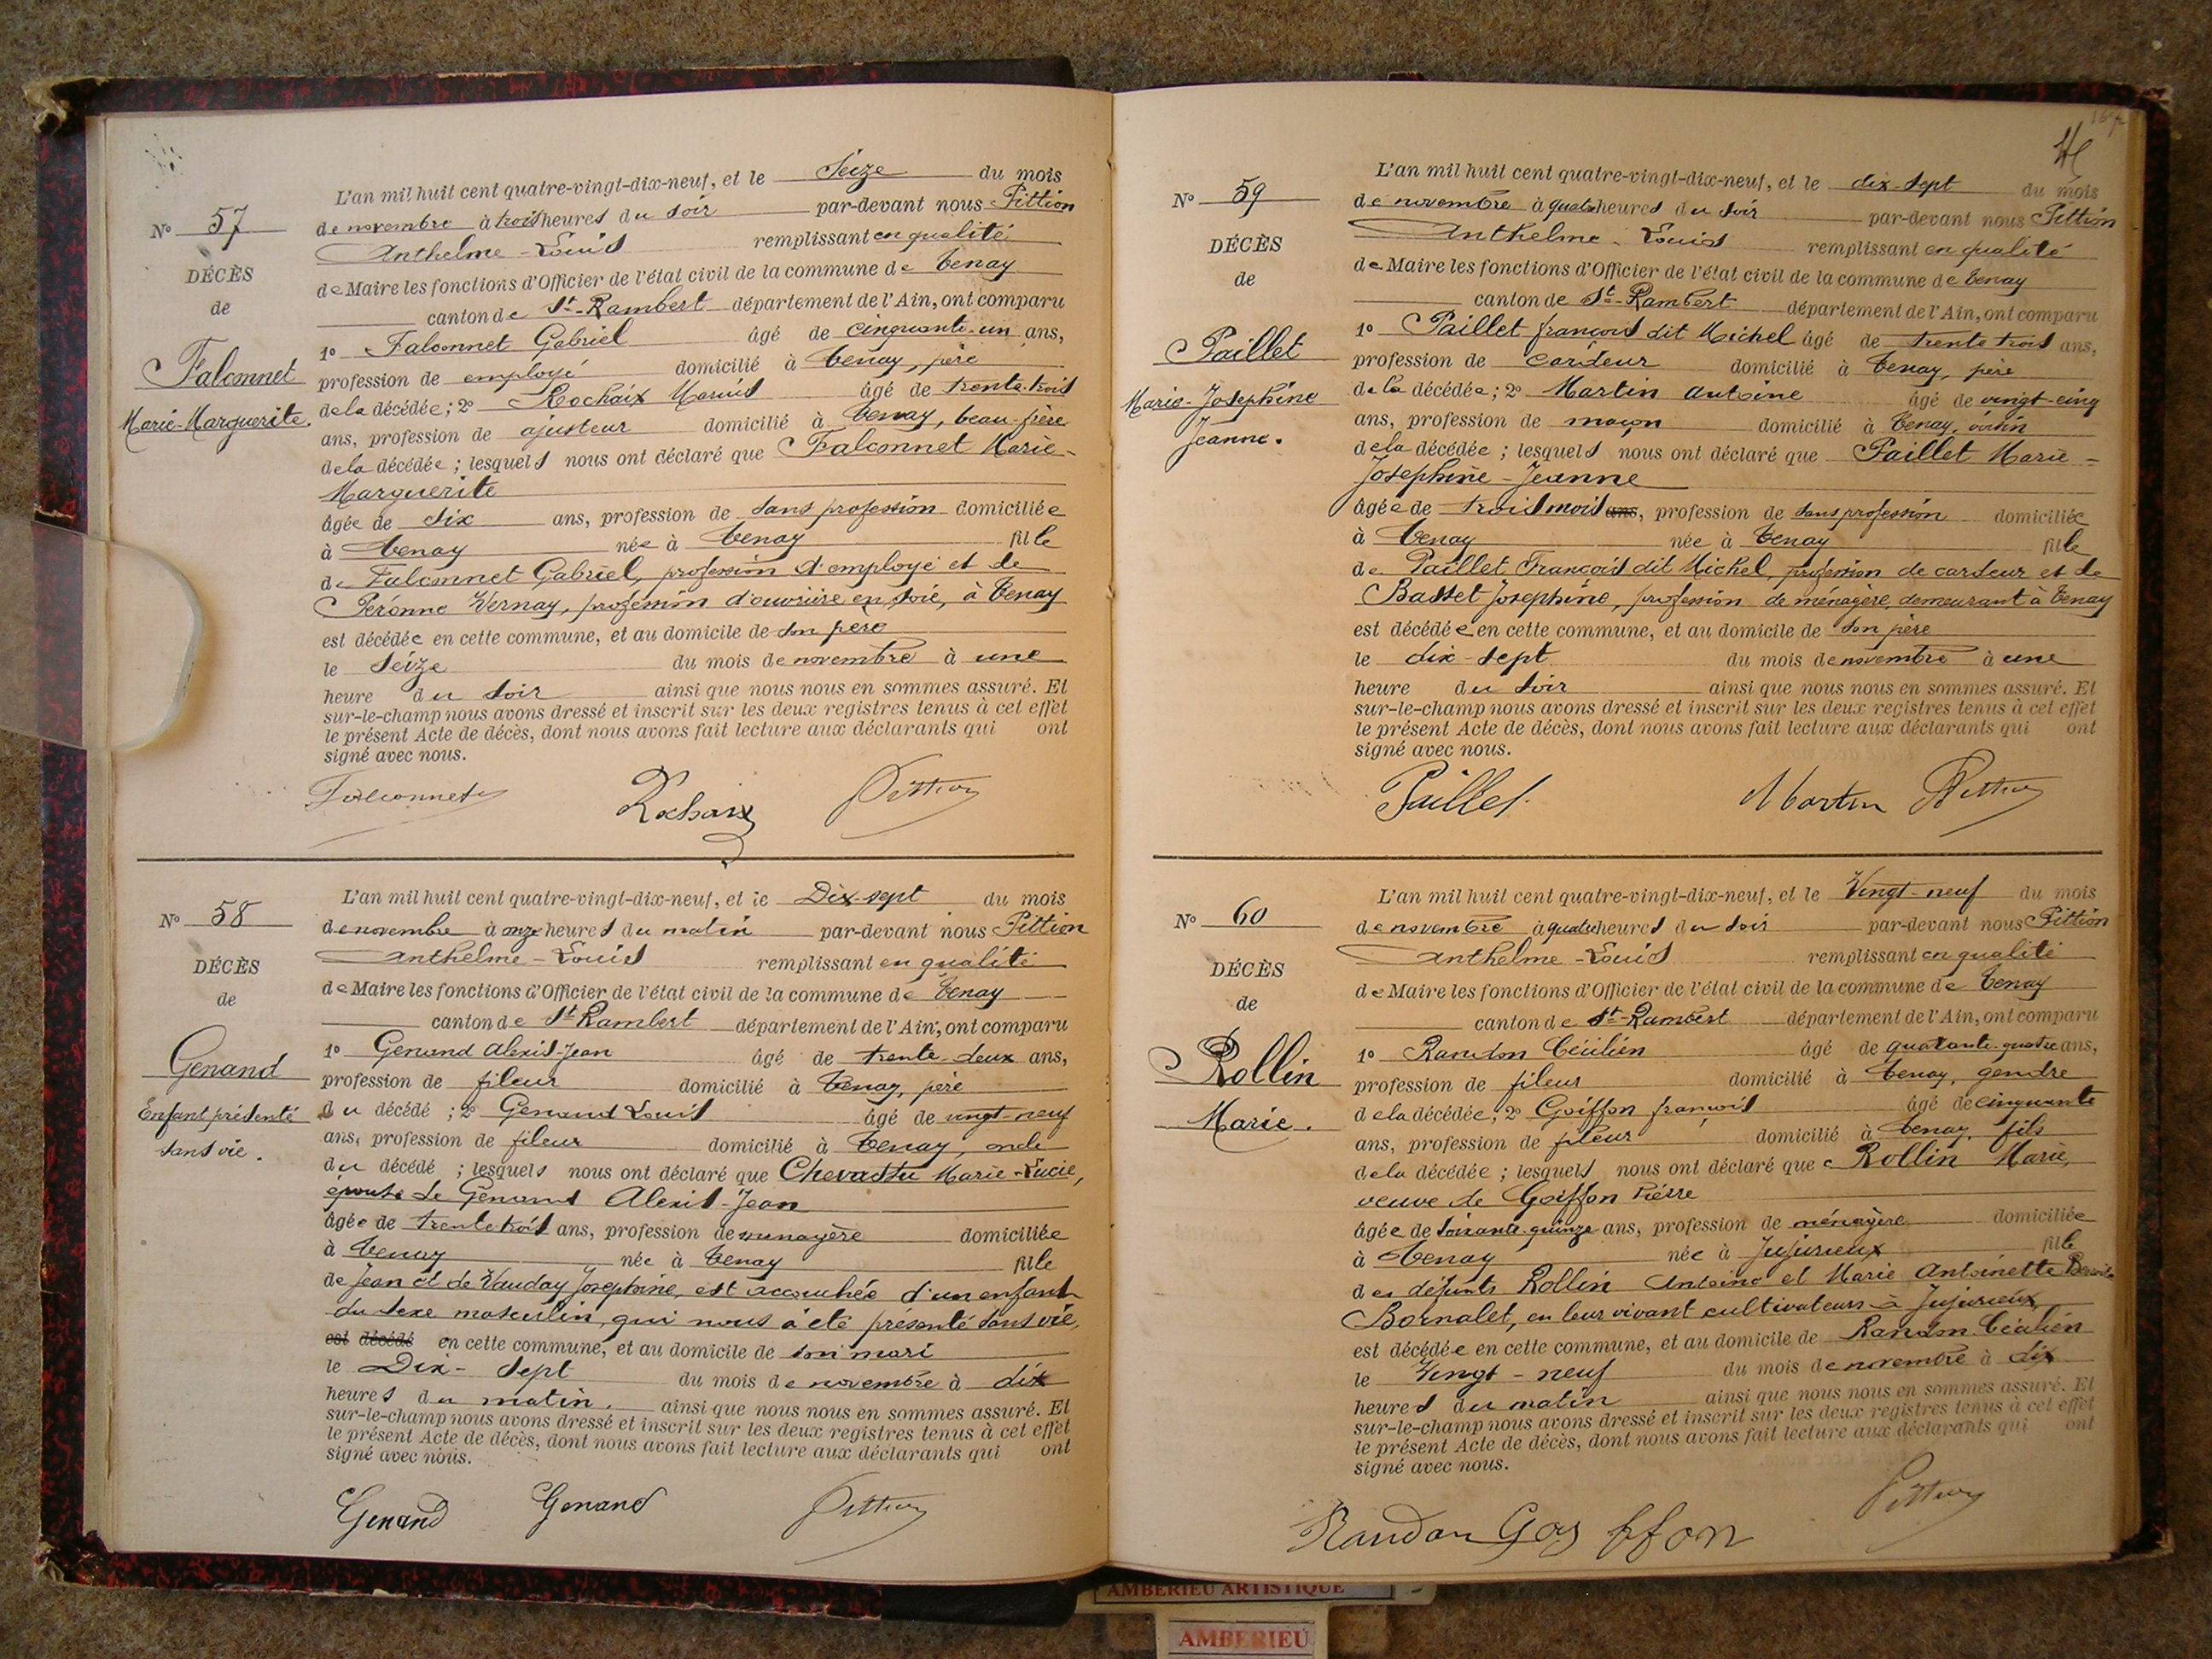 N° 57
DÉCÈS
de
Falconnet
Marie-Marguerite.
L'an mil huit cent quatre-vingt-dix-neuf, et le Seize du mois
de novembre à trois heures du soir par-devant nous Pittion
Anthelme-Louis remplissant en qualité
de Maire les fonctions d'Officier de l'état civil de la commune de Tenay
canton de St-Rambert département de l'Ain, ont comparu
1° Falconnet Gabriel âgé de cinquante-un ans,
profession de employé domicilié à Tenay, père
de la décédée; 2° Rochaix Marius âgé de trente-trois
ans, profession de ajusteur domicilié à Tenay, beau-frère
de la décédée; lesquels nous ont déclaré que Falconnet Marie-
Marguerite
âgée de dix ans, profession de sans profession domiciliée
à Tenay née à Tenay fille
de Falconnet Gabriel, profession d'employé et de
Peronne Vernay, profession d'ouvrière en soie, à Tenay
est décédée en cette commune, et au domicile de son père
le Seize du mois de novembre à une
heure du soir ainsi que nous nous en sommes assuré. Et
sur-le-champ nous avons dressé et inscrit sur les deux registres tenus à cet effet
le présent Acte de décès, dont nous avons fait lecture aux déclarants qui ont
signé avec nous.
Falconnet Rochaix Pittion
N° 58
DÉCÈS
de
Genand
Enfant présenté
sans vie.
L'an mil huit cent quatre-vingt-dix-neuf, et le Dix-sept du mois
de novembre à onze heures du matin par-devant nous Pittion
Anthelme-Louis remplissant en qualité
de Maire les fonctions d'Officier de l'état civil de la commune de Tenay
canton de St Rambert département de l'Ain, ont comparu
1° Genand Alexis-Jean âgé de trente-deux ans,
profession de fileur domicilié à Tenay, père
du décédé; 2° Genand Louis âgé de vingt-neuf
ans, profession de fileur domicilié à Tenay, oncle
du décédé; lesquels nous ont déclaré que Chevassu Marie-Lucie,
épouse de Genand Alexis-Jean
âgée de trente trois ans, profession de menagère domiciliée
à Tenay née à Tenay fille
de Jean et de Vauday Josephine, est accouchée d'un enfant
du sexe masculin, qui nous a été présenté sans vie,
est décédé en cette commune, et au domicile de son mari
le Dix-Sept du mois de novembre à dix
heures du matin. ainsi que nous nous en sommes assuré. Et
sur-le-champ nous avons dressé et inscrit sur les deux registres tenus à cet effet
le présent Acte de décès, dont nous avons fait lecture aux déclarants qui ont
signé avec nous.
Genand Genand Pittion
N° 59
DÉCÈS
de
Paillet
Marie-Josephine
Jeanne.
L'an mil huit cent quatre-vingt-dix-neuf, et le dix-sept du mois
de novembre à quatre heures du soir par-devant nous Pittion
Anthelme-Louis remplissant en qualité
de Maire les fonctions d'Officier de l'état civil de la commune de Tenay
canton de St-Rambert département de l'Ain, ont comparu
1° Paillet françois dit Michel âgé de trente trois ans,
profession de cardeur domicilié à Tenay, père
de la décédée; 2° Martin Antoine âgé de vingt-cinq
ans, profession de maçon domicilié à Tenay, voisin
de la décédée; lesquels nous ont déclaré que Paillet Marie-
Josephine-Jeanne
âgée de trois mois ans, profession de sans profession domiciliée
à Tenay née à Tenay fille
de Paillet François dit Michel, profession de cardeur et de
Basset Josephine, profession de ménagère, demeurant à Tenay
est décédée en cette commune, et au domicile de son père
le dix-sept du mois de novembre à une
heure du soir ainsi que nous nous en sommes assuré. Et
sur-le-champ nous avons dressé et inscrit sur les deux registres tenus à cet effet
le présent Acte de décès, dont nous avons fait lecture aux déclarants qui ont
signé avec nous.
Paillet Martin Pittion
N° 60
DÉCÈS
de
Rollin
Marie.
L'an mil huit cent quatre-vingt-dix-neuf, et le Vingt-neuf du mois
de novembre à quatre heures du soir par-devant nous Pittion
Anthelme-Louis remplissant en qualité
de Maire les fonctions d'Officier de l'état civil de la commune de Tenay
canton de St-Rambert département de l'Ain, ont comparu
1° Randon Cécilien âgé de quarante-quatre ans,
profession de fileur domicilié à Tenay, gendre
de la décédée; 2° Goiffon françois âgé de cinquante
ans, profession de fileur domicilié à Tenay, fils
de la décédée; lesquels nous ont déclaré que Rollin Marie,
veuve de Goiffon Pierre
âgée de soixante-quinze ans, profession de ménagère domiciliée
à Tenay née à Jujurieux fille
des défunts Rollin Antoine et Marie Antoinette
Bornalet, en leur vivant cultivateurs à Jujurieux
est décédée en cette commune, et au domicile de Randon Cécilien
le Vingt-neuf du mois de novembre à dix
heures du matin ainsi que nous nous en sommes assuré. Et
sur-le-champ nous avons dressé et inscrit sur les deux registres tenus à cet effet
le présent Acte de décès, dont nous avons fait lecture aux déclarants qui ont
signé avec nous.
Randon Goyffon Pittion
AMBERIEU ARTISTIQUE
AMBERIEU